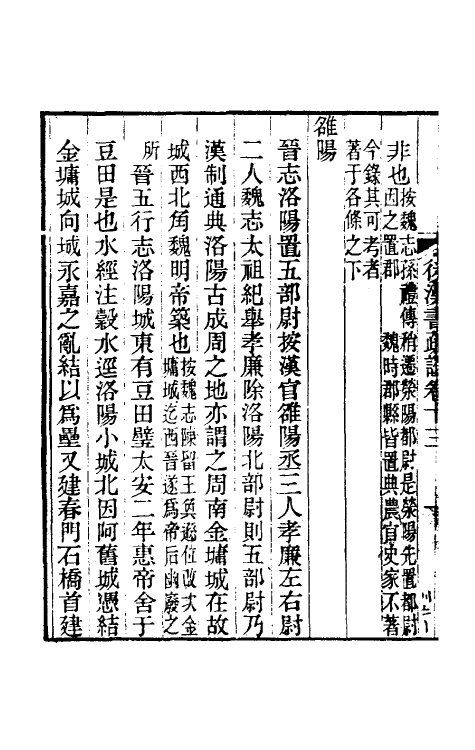 非也按魏志孫禮傳稍遷滎陽都尉是滎陽先置都尉
因之置郡　魏時郡縣皆置典農官史家不著
今錄其可考者
著于各條之下
雒陽
晉志洛陽置五部尉按漢官雒陽丞三人孝廉左右尉
二人魏志太祖紀舉孝廉除洛陽北部尉則五部尉乃
漢制通典洛陽古成周之地亦謂之周南金墉城在故
城西北角魏明帝築也按魏志陳留王奐遜位改次金
墉城迄西晉遂為帝后幽廢之
所晉五行志洛陽城東有豆田壁太安二年惠帝舍于
豆田是也水經注穀水逕洛陽小城北因阿舊城憑結
金墉城向城永嘉之亂結以為壘又建春門石橋首建
後漢書疏證卷十三